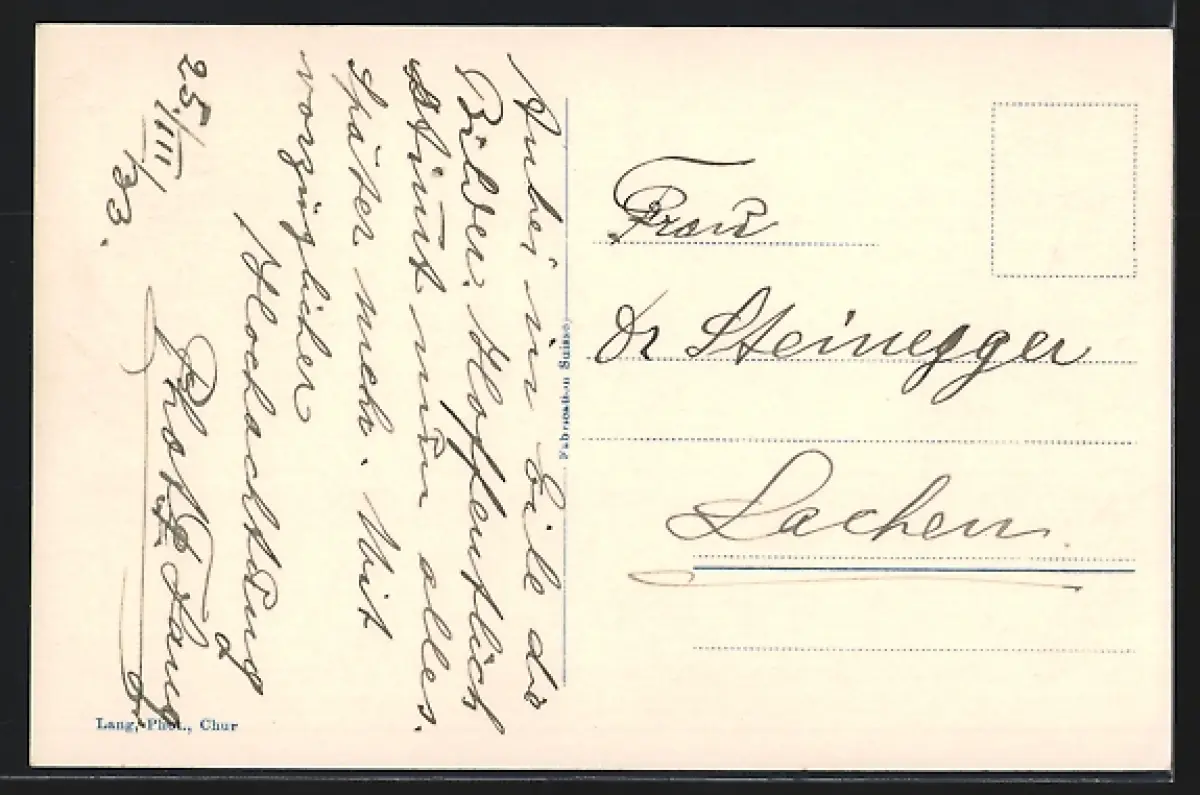 Anbei in Eile die
Bilder. Hoffentlich
stimmt nun alles.
Später mehr. Mit
vorzüglicher
Hochachtung
Phot. Lang
25./III/33.
Frau
Dr Steinegger
Lachen
Fabrication Suisse
Lang, Phot., Chur